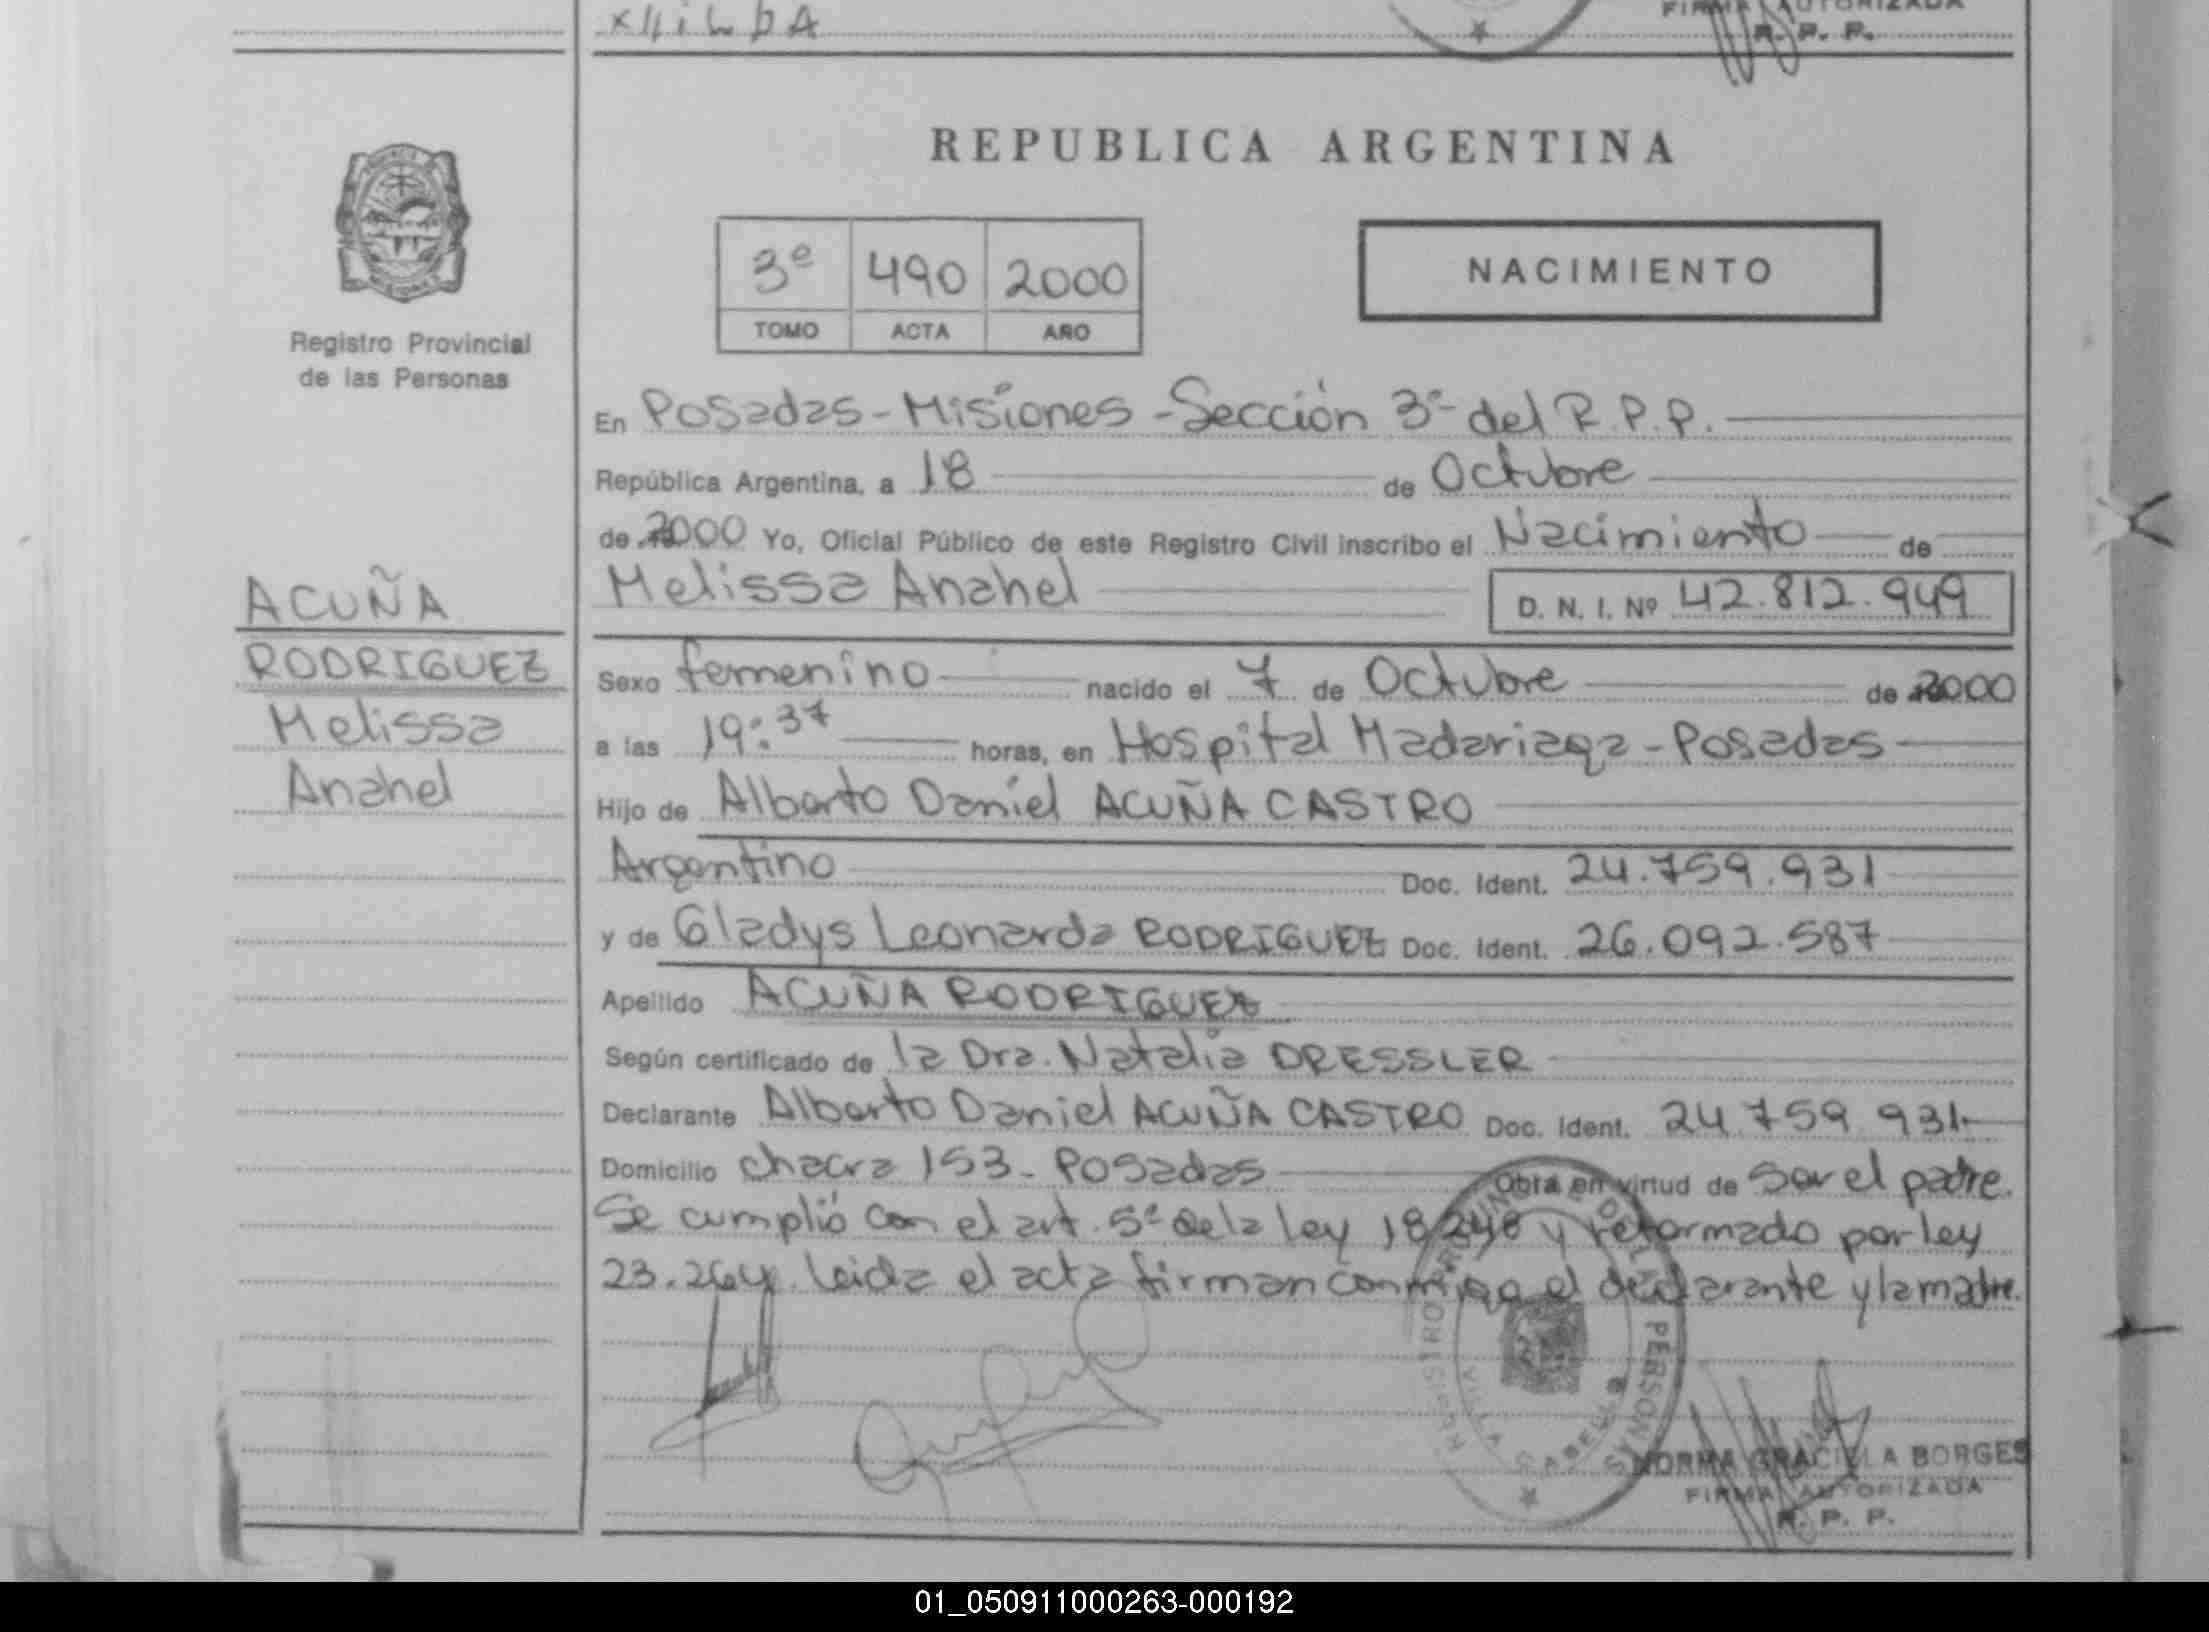 FIRMA AUTORIZADA
R. P. P.
REPUBLICA ARGENTINA
3º 490 2000
TOMO ACTA AÑO
NACIMIENTO
Registro Provincial
de las Personas
En Posadas - Misiones - Sección 3º del R.P.P.
República Argentina, a 18 de Octubre
de 2000 Yo, Oficial Público de este Registro Civil inscribo el Nacimiento de
Melissa Anahel D. N. I. Nº 42.812.949
ACUÑA
RODRIGUEZ
Melissa
Anahel
Sexo femenino nacido el 7 de Octubre de 2000
a las 19:37 horas, en Hospital Madariaga - Posadas
Hijo de Alberto Daniel ACUÑA CASTRO
Argentino Doc. Ident. 24.759.931
y de Gladys Leonarda RODRIGUEZ Doc. Ident. 26.092.587
Apellido ACUÑA RODRIGUEZ
Según certificado de la Dra. Natalia DRESSLER
Declarante Alberto Daniel ACUÑA CASTRO Doc. Ident. 24.759.931
Domicilio chacra 153 - Posadas Obra en virtud de ser el padre.
Se cumplió con el art. 5º de la ley 18.248 y reformado por ley
23.264. Leida el acta firman conmigo el declarante y la madre.
DE LAS PERSONAS
VILLA CABELLO
NORMA GRACIELA BORGES
FIRMA AUTORIZADA
R. P. P.
01_050911000263-000192